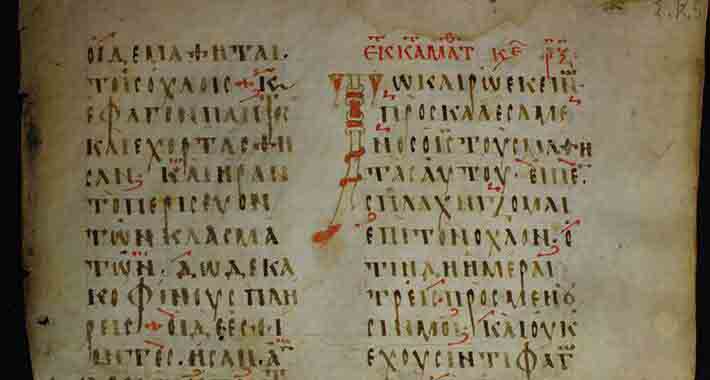 ΟΙΔΕΜΑΘΗΤΑΙ·
ΤΟΙϹΟΧΛΟΙϹ + Κ
ΕΦΑΓΟΝΠΑΝΤΕϹ
ΚΑΙΕΧΟΡΤΑϹΘΗ
ϹΑΝ· ΚΑΙΗΡΑΝ
ΤΟΠΕΡΙϹΕΥΟΝ
ΤΩΝΚΛΑϹΜΑ
ΤΩΝ· ΔΩΔΕΚΑ
ΚΟΦΙΝΟΥϹΠΛΗ
ΡΕΙϹ + ΟΙΔΕΕϹΘΙ
ΟΝΤΕϹ· ΗϹΑΝ·
ΕΚΚΑΜΑΤ ΚΕ
ΤΩΚΑΙΡΩΕΚΕΙΝ
ΠΡΟϹΚΑΛΕϹΑΜΕ
ΝΟϹΟΙϹΤΟΥϹΜΑΘΗ
ΤΑϹΑΥΤΟΥ· ΕΙΠΕ
ϹΠΛΑΧΝΙΖΟΜΑΙ
ΕΠΙΤΟΝΟΧΛΟΝ· Ο
ΤΙΗΔΗΗΜΕΡΑΙ
ΤΡΕΙϹ·ΠΡΟϹΜΕΝΟΥ
ϹΙΝΜΟΙ· ΚΑΙΟΥΚ
ΕΧΟΥϹΙΝΤΙΦΑΓ